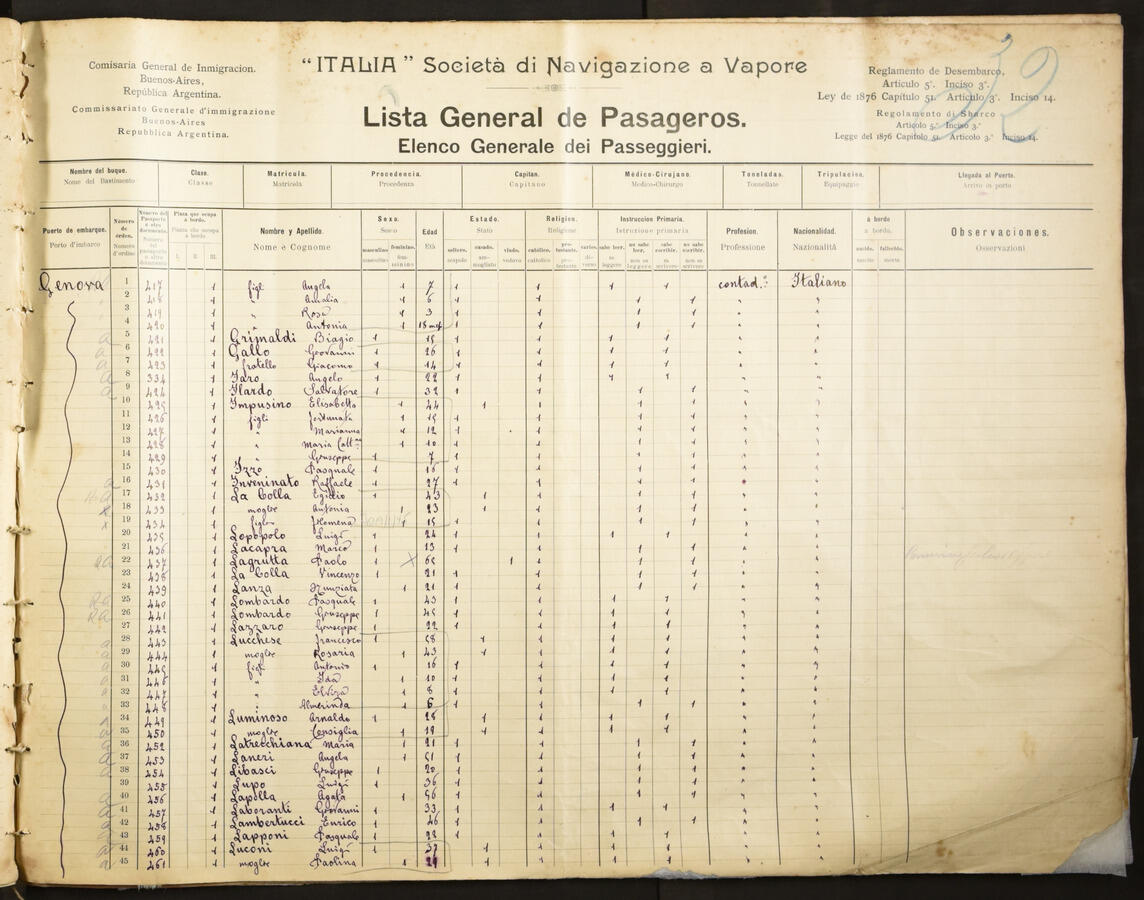 "ITALIA" Società di Navigazione a Vapore
Comisaria General de Inmigracion.
Buenos-Aires,
República Argentina.
Commissariato Generale d'immigrazione
Buenos-Aires
Repubblica Argentina.
Lista General de Pasageros.
Elenco Generale dei Passeggieri.
Reglamento de Desembarco,
Artículo 5º. Inciso 3º.
Ley de 1876 Capítulo 51. Artículo 3º. Inciso 14.
Regolamento di Sbarco
Articolo 5.º Inciso 3.º
Legge del 1876 Capitolo 51. Articolo 3.º Inciso 14.
32
Nombre del buque. Clase. Matrícula. Procedencia. Capitan. Médico-Cirujano. Toneladas. Tripulacion. Llegada al Puerto.
Nome del Bastimento Classe Matricola Procedenza Capitano Medico-Chirurgo Tonnellate Equipaggio Arrivo in porto
Puerto de embarque. Número de órden. Nombre y Apellido. Sexo. Edad Estado. Religion. Instruccion Primaria. Profesion. Nacionalidad. á bordo Observaciones.
Porto d'imbarco Nome e Cognome Sesso Età Stato Religione Istruzione primaria Professione Nazionalità a bordo. Osservazioni
Genova 1 417 1 figli Angela 1 7 1 1 1 1 contad.º Italiano
2 418 1 " Amalia 1 6 1 1 1 1
3 419 1 " Rosa 1 3 1 1 1
4 420 1 " Antonia 1 18 1 1 1 1
5 421 1 Grimaldi Biagio 1 15 1 1 1 1
6 422 1 Gallo Giovanni 1 26 1 1 1 1
7 423 1 fratello Giacomo 1 14 1 1 1 1
8 334 1 Iaro Angelo 1 22 1 1 1 1
9 424 1 Ilardo Salvatore 1 32 1 1 1 1
10 425 1 Impusino Elisabetta 1 44 1 1 1 1
11 426 1 figli Fortunata 1 15 1 1 1 1
12 427 1 " Marianna 1 12 1 1 1 1
13 428 1 " Maria Catt.na 1 10 1 1 1 1
14 429 1 " Giuseppe 1 7 1 1 1 1
15 430 1 Izzo Pasquale 1 16 1 1 1 1
16 431 1 Inveninato Raffaele 1 27 1 1 1 1
17 432 1 La Colla Egidio 1 43 1 1 1 1
18 433 1 moglie Antonia 1 23 1 1 1 1
19 434 1 figlia Filomena 1 15 1 1 1 1
20 435 1 Lopopolo Luigi 1 24 1 1 1 1
21 436 1 Lacapra Marco 1 13 1 1 1 1
22 437 1 Lagrutta Paolo 65 1 1 1 1
23 438 1 La Colla Vincenzo 1 21 1 1 1 1
24 439 1 Lanza Nunziata 1 21 1 1 1 1
25 440 1 Lombardo Pasquale 1 43 1 1 1 1
26 441 1 Lombardo Giuseppe 1 45 1 1 1 1
27 442 1 Lazzaro Giuseppe 1 22 1 1 1 1
28 443 1 Lucchese Francesco 1 58 1 1 1 1
29 444 1 moglie Rosaria 1 43 1 1 1 1
30 445 1 figli Antonio 1 16 1 1 1 1
31 446 1 " Ida 1 10 1 1 1 1
32 447 1 " Elvira 1 8 1 1
33 448 1 " Almerinda 1 6 1 1 1 1
34 449 1 Luminoso Arnaldo 1 28 1 1 1 1
35 450 1 moglie Consiglia 1 19 1 1 1 1
36 452 1 Latrecchiana Maria 1 21 1 1 1 1
37 453 1 Laneri Angela 1 51 1 1 1 1
38 454 1 Libasci Giuseppe 1 20 1 1 1 1
39 455 1 Lupo Luigi 1 36 1 1 1 1
40 456 1 Lapolla Agata 1 56 1 1 1 1
41 457 1 Laboranti Giovanni 1 33 1 1 1 1
42 458 1 Lambertucci Enrico 1 46 1 1 1 1
43 459 1 Lapponi Pasquale 1 22 1 1 1 1
44 460 1 Luconi Luigi 1 37 1 1 1 1
45 461 1 moglie Paolina 1 29 1 1 1 1